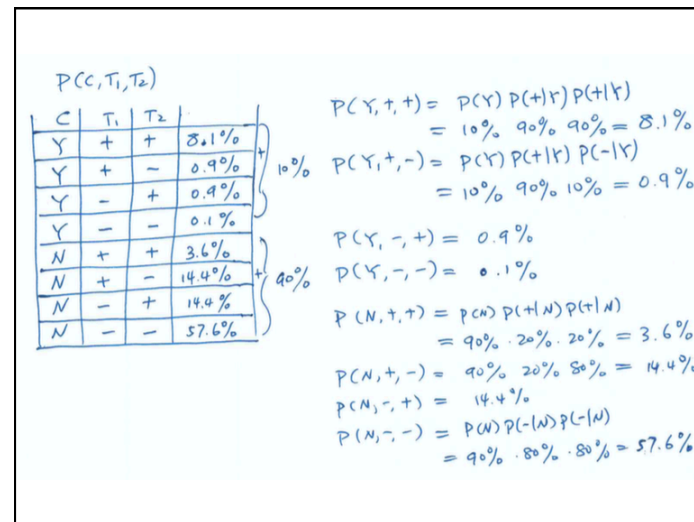 P(C,T₁,T₂)
C T₁ T₂
Y + + 8.1%
Y + - 0.9%
Y - + 0.9%
Y - - 0.1%
+ 10%
N + + 3.6%
N + - 14.4%
N - + 14.4%
N - - 57.6%
+ 90%
P(Y,+,+) = P(Y) P(+|Y) P(+|Y)
= 10% 90% 90% = 8.1%
P(Y,+,-) = P(Y) P(+|Y) P(-|Y)
= 10% 90% 10% = 0.9%
P(Y,-,+) = 0.9%
P(Y,-,-) = 0.1%
P(N,+,+) = P(N) P(+|N) P(+|N)
= 90% · 20% · 20% = 3.6%
P(N,+,-) = 90% 20% 80% = 14.4%
P(N,-,+) = 14.4%
P(N,-,-) = P(N) P(-|N) P(-|N)
= 90% · 80% · 80% = 57.6%